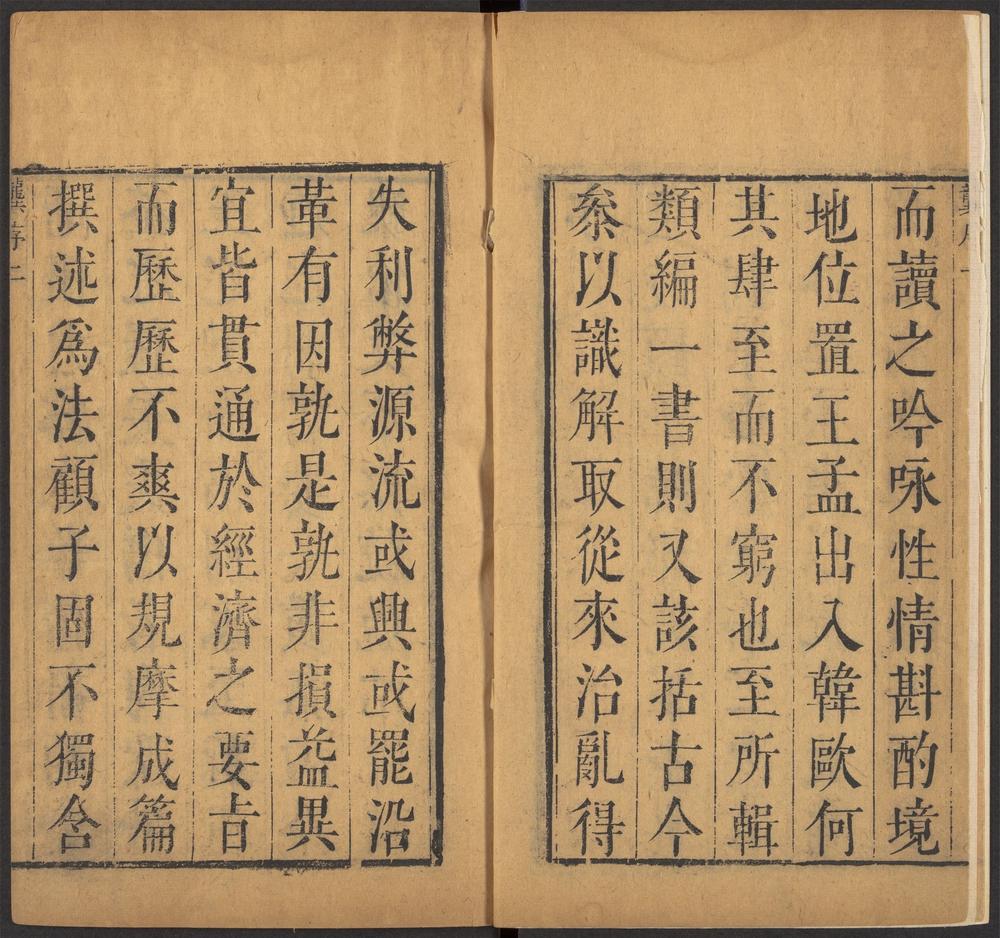 而讀之吟咏性情斟酌境
地位置王孟出入韓歐何
其肆至而不窮也至所輯
類編一書則又該括古今
叅以識解取從來治亂得
失利弊源流或興或罷沿
革有因孰是孰非損益異
宜皆貫通於經濟之要旨
而歷歷不爽以規摩成篇
撰述爲法顧子固不獨含
龔序二